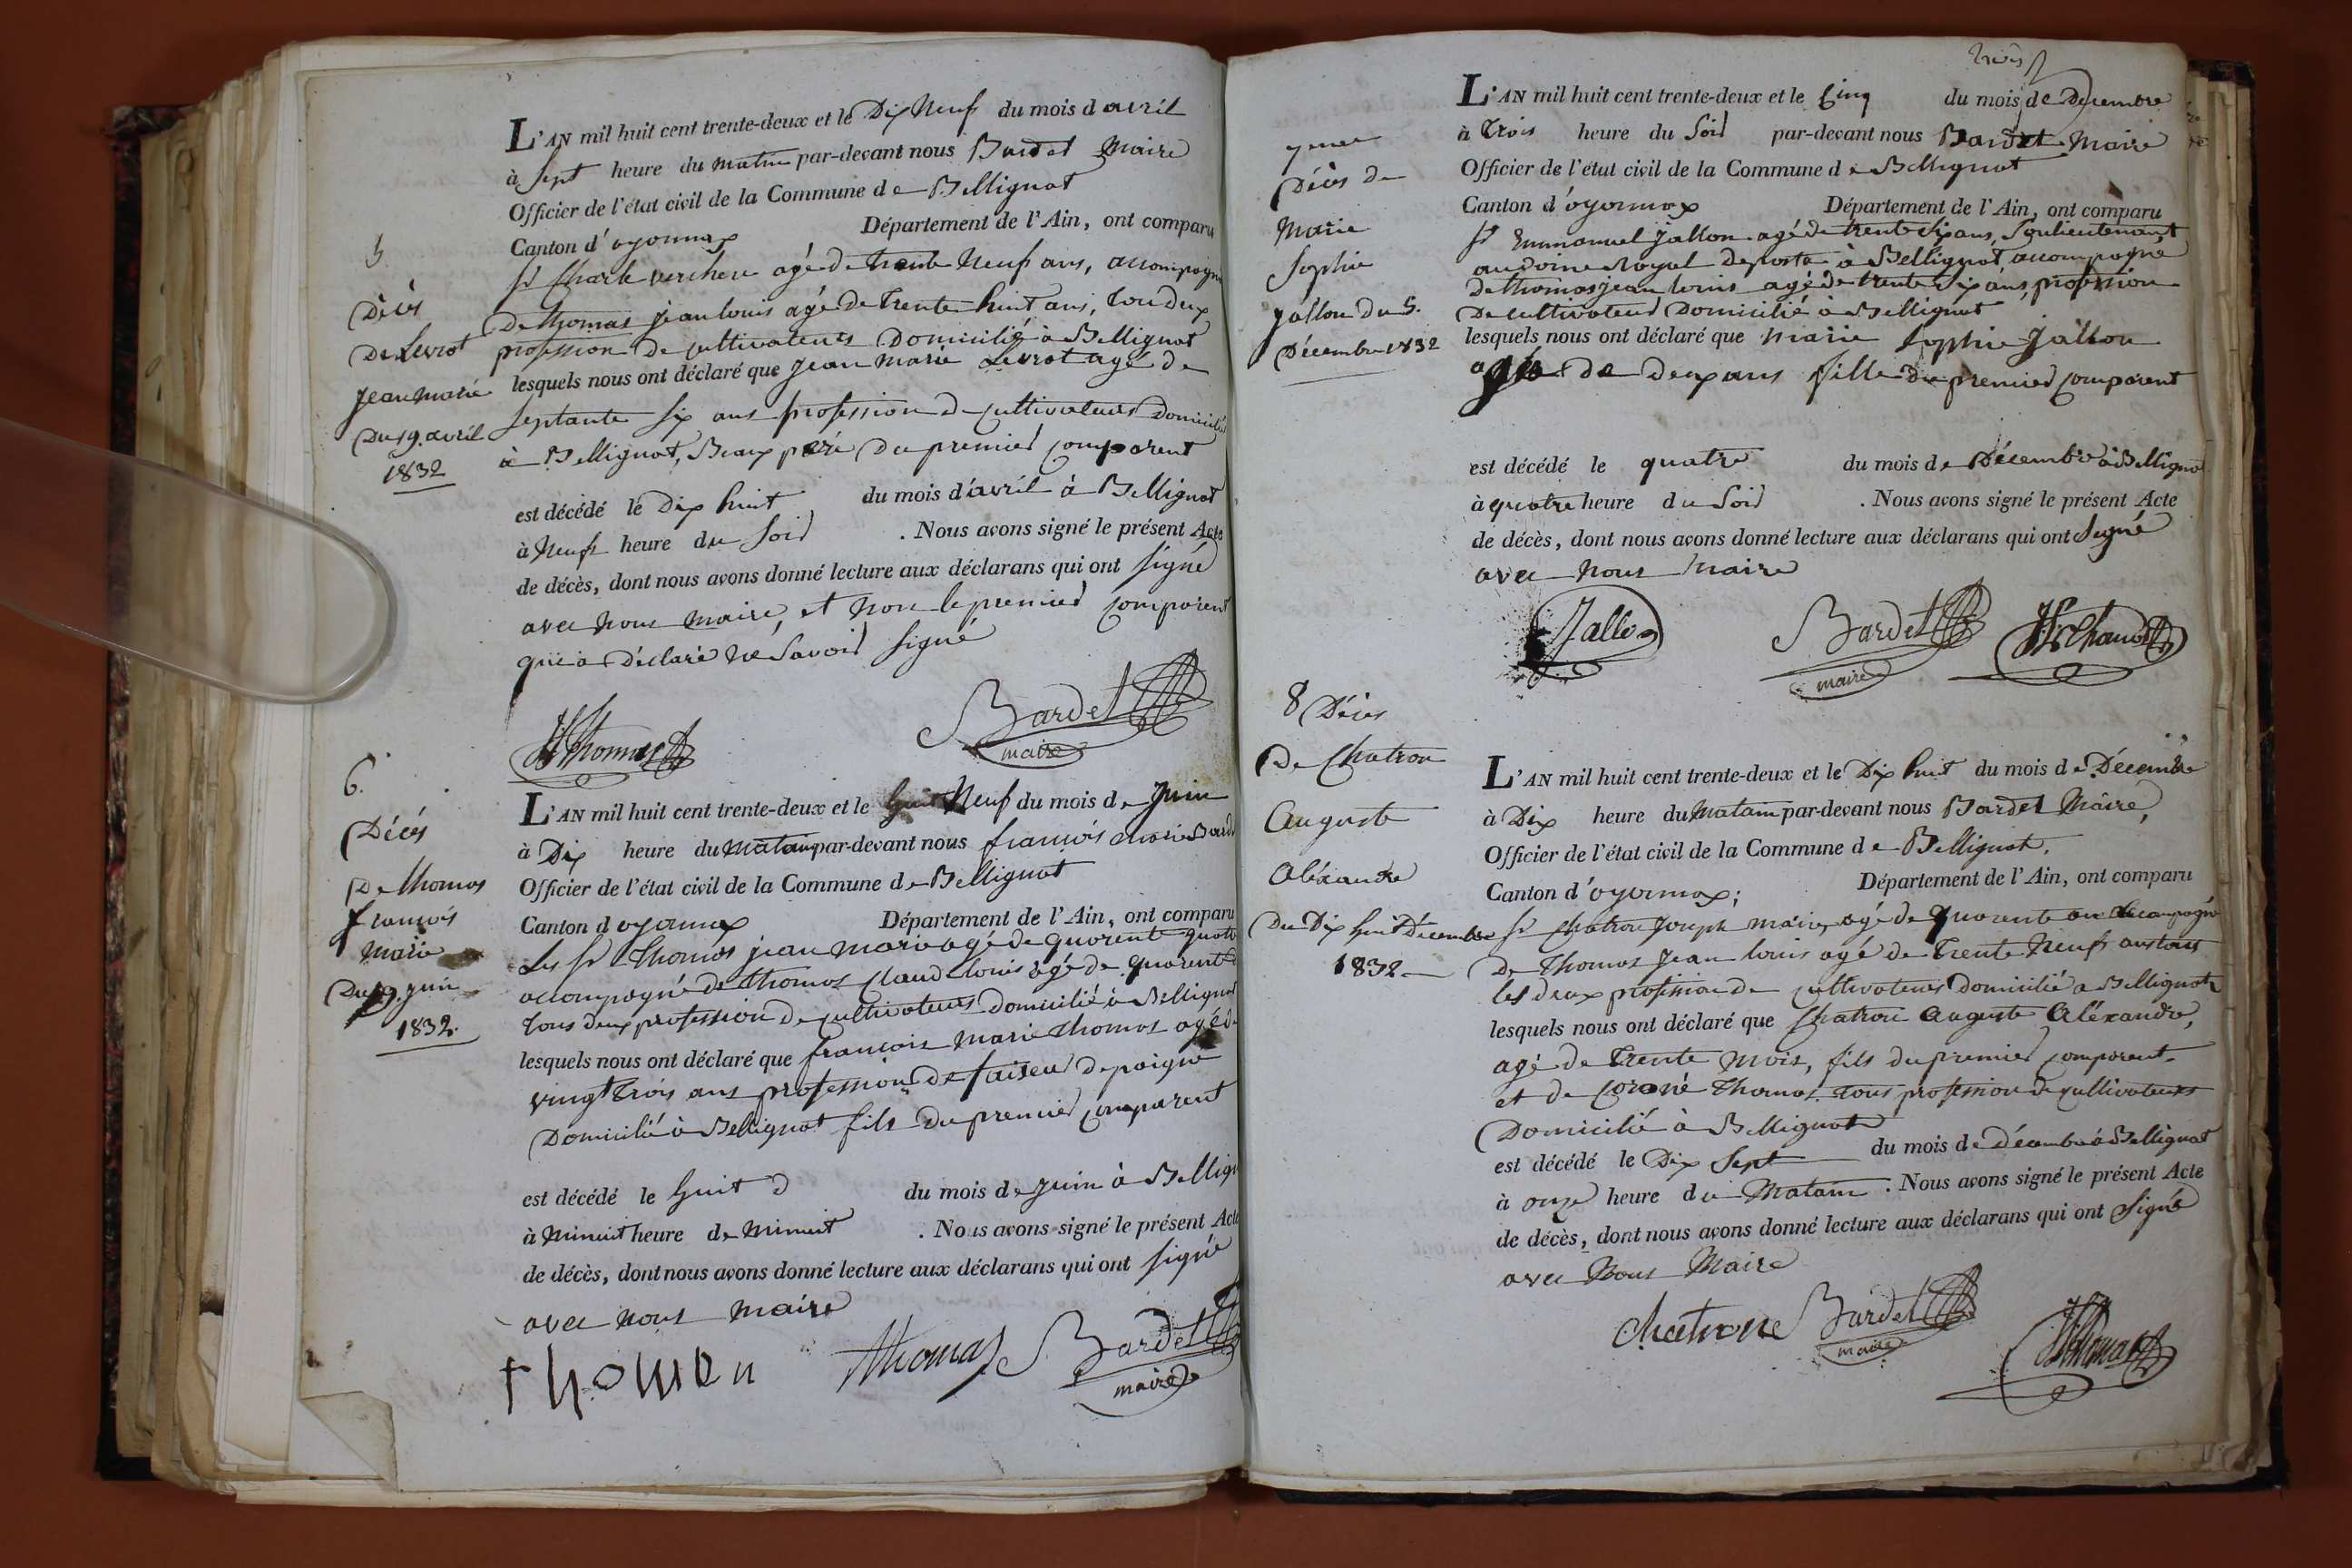 5.
Décès
De Levrot
Jean marie
Du 19. avril
1832
L'AN mil huit cent trente-deux et le Dix Neuf du mois d avril
à Sept heure du matin par-devant nous Bardet Maire
Officier de l'état civil de la Commune de Bellignat
Canton d'oyonnax Département de l'Ain, ont comparu
Sr Charle verchere agé de trente Neuf ans, accompagné
De thomas jean louis agé de Trente huit ans, tou deux
profession de cultivateurs Domicilié à Bellignat
lesquels nous ont déclaré que jean marie Levrot agé de
Septante Six ans profession de cultivateurs Domicilié
à Bellignat, Beaux père du premier comparent
est décédé le Dix huit du mois d'avril à Bellignat
à Neuf heure du Soir . Nous avons signé le présent Acte
de décès, dont nous avons donné lecture aux déclarans qui ont signé
avec nous maire, et non le premier comparent
qui a Déclaré ne Savoir signé
JLThomas Bardet
maire
6.
Décès
De thomas
françois
marie
Du 9. juin
1832.
L'AN mil huit cent trente-deux et le Neuf du mois de Juin
à Dix heure du matain par-devant nous françois marie Bardet
Officier de l'état civil de la Commune de Bellignat
Canton d oyonnax Département de l'Ain, ont comparu
Les Sr Thomas jean marie agé de quarent quatre
accompagné de thomas Claude louis agé de quarent
tous deux profession de cultivateurs domicilié à Bellignat
lesquels nous ont déclaré que françois marie thomas agé de
vingt trois ans profession de faiseur de paigne
Domicilié à Bellignat fils du premier comparent
est décédé le huit du mois de juin à Bellign
à minuit heure de minuit . Nous avons signé le présent Acte
de décès, dont nous avons donné lecture aux déclarans qui ont signé
avec nous maire
thoman thomas Bardet
maire
7me
Décès de
Marie
Sophie
jallon du 5.
Décembre 1832
L'AN mil huit cent trente-deux et le Cinq du mois de Decembre
à trois heure du Soir par-devant nous Bardet Maire
Officier de l'état civil de la Commune de Bellignat
Canton d'oyonnax Département de l'Ain, ont comparu
Sr Emmanuel jallon agé de trente Six ans, Soulieutenant
au doine Royal de poste à Bellignat, accompagné
De thomas jean louis agé de trente Six ans, profession
De cultivateur Domicilié à Bellignat
lesquels nous ont déclaré que marie Sophie jallon
agée de deux ans fille du premier comparent
est décédé le quatre du mois de Décembre à Bellignat
à quatre heure du Soir . Nous avons signé le présent Acte
de décès, dont nous avons donné lecture aux déclarans qui ont Signé
avec nous maire
Jallon Bardet
maire
8 Décès
De Chatron
Auguste
Aléxandre
Du Dix huit Décembre
1832
L'AN mil huit cent trente-deux et le Dix huit du mois de Décembre
à Dix heure du Matain par-devant nous Bardet Maire,
Officier de l'état civil de la Commune de Bellignat.
Canton d'oyonnax; Département de l'Ain, ont comparu
Sr Chatron Joseph marie, agé de quarente an accompagné
De Thomas Jean louis agé de trente Neuf ans tous
les deux profession de cultivateurs Domicilié a Bellignat
lesquels nous ont déclaré que Chatron Auguste Aléxandre,
agé de trente mois, fils du premier comparent
et de Thomas. tous profession de cultivateurs
Domicilié à Bellignat
est décédé le Dix Sept du mois de décembre à Bellignat
à onze heure du Matain . Nous avons signé le présent Acte
de décès, dont nous avons donné lecture aux déclarans qui ont Signé
avec Nous Maire
Chatrone Bardet JLThomas
maire